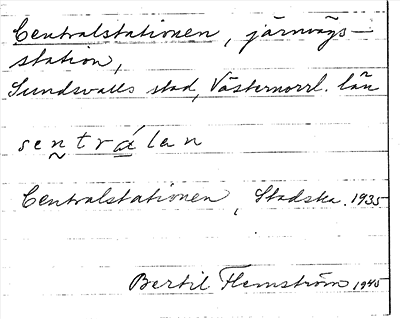 Centralstationen, järnvägs-
station,
Sundsvalls stad, Västernorrl. län
sen̰trá̱lan
Centralstationen, Stadska. 1935
Bertil Flemström 1940